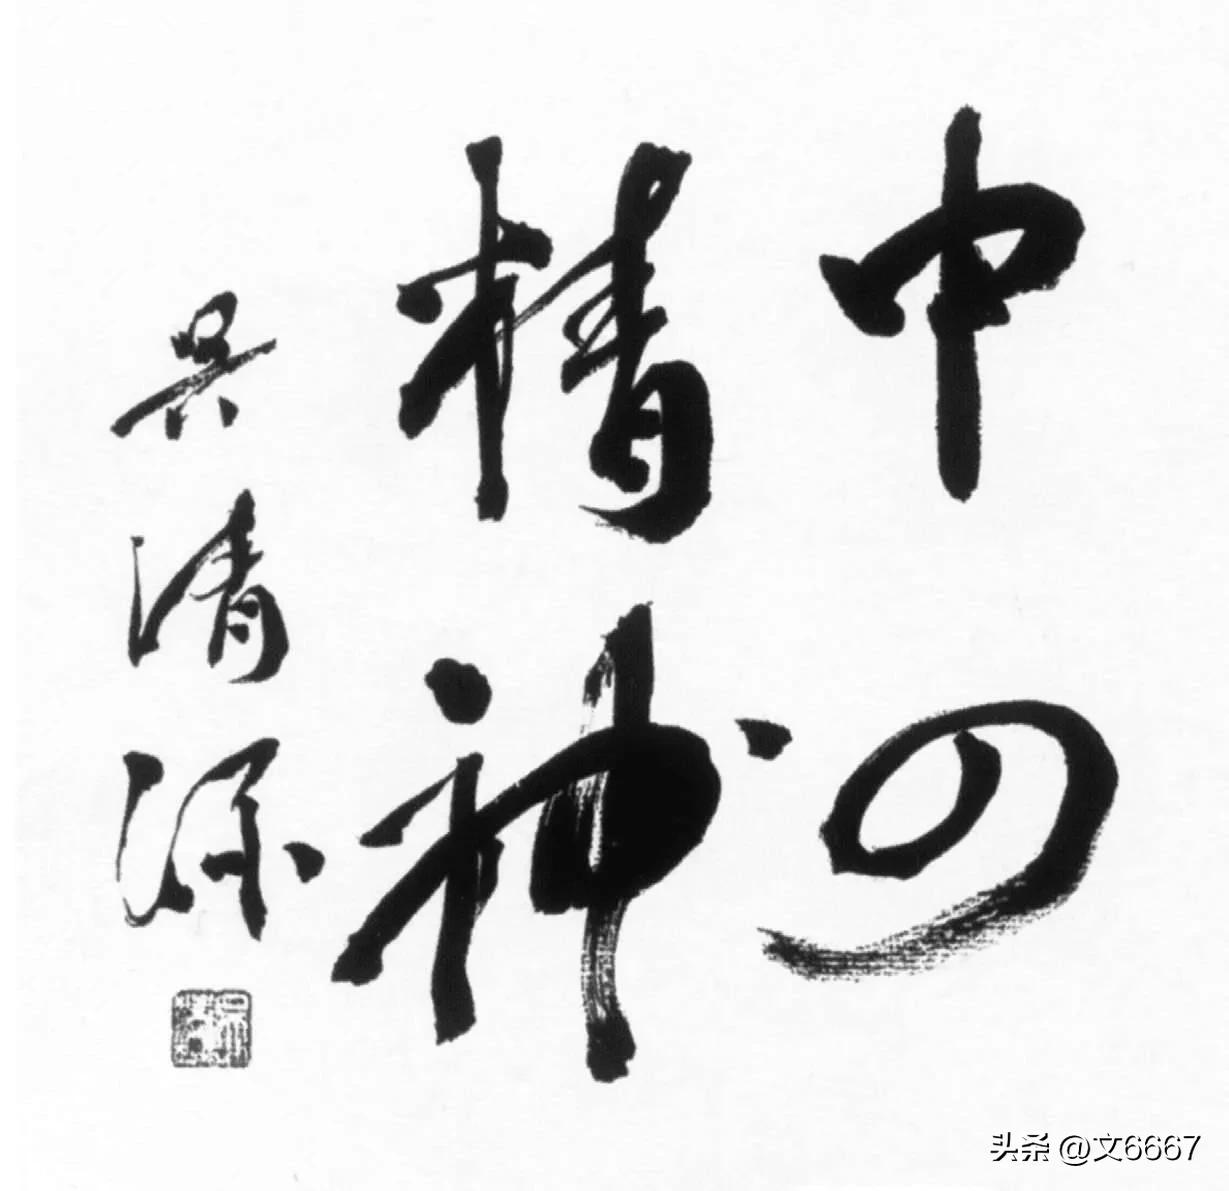 中の
精神
呉清源
头条 @文6667